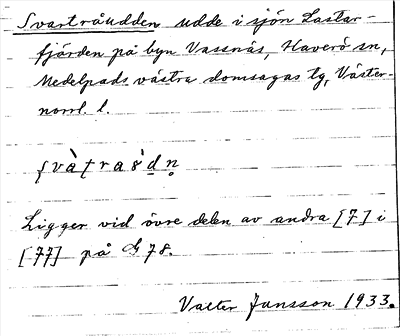 Svartråudden udde i sjön Lastar-
fjärden på byn Vassnäs, Haverö sn,
Medelpads västra domsagas tg, Väster-
norrl. l.
Ligger vid övre delen av andra [7] i
[77] på G 78.
Valter Jansson 1933.